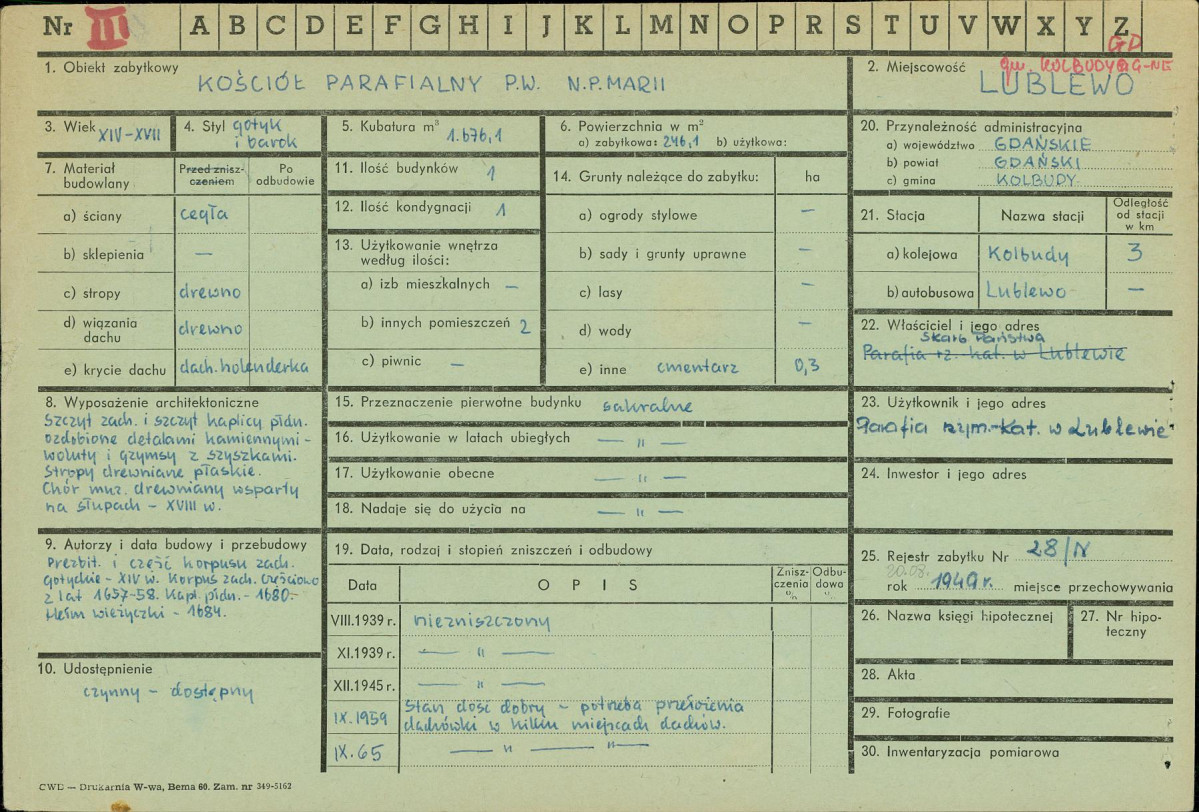 Nr III A B C D E F G H I J K L M N O P R S T U V W X Y Z
GD
gm. KOLBUDY
1. Obiekt zabytkowy
KOŚCIÓŁ PARAFIALNY P.W. N.P.MARII
2. Miejscowość
LUBLEWO
3. Wiek XIV-XVII
4. Styl gotyk
i barok
5. Kubatura m³ 1.676,1
6. Powierzchnia w m²
a) zabytkowa: 246,1 b) użytkowa:
7. Materiał
budowlany
Przed znisz-
czeniem
Po
odbudowie
a) ściany cegła
b) sklepienia —
c) stropy drewno
d) wiązania
dachu drewno
e) krycie dachu dach. holenderka
8. Wyposażenie architektoniczne
Szczyt zach. i szczyt kaplicy płdn.
ozdobione detalami kamiennymi –
woluty i gzymsy z szyszkami.
Stropy drewniane płaskie.
Chór muz. drewniany wsparty
na słupach – XVIII w.
9. Autorzy i data budowy i przebudowy
Prezbit. i część korpusu zach.
gotyckie – XIV w. Korpus zach. częściowo
z lat 1657-58. Kapl. płdn. – 1680.–
Hełm wieżyczki – 1684.
10. Udostępnienie
czynny – dostępny
11. Ilość budynków 1
12. Ilość kondygnacji 1
13. Użytkowanie wnętrza
według ilości:
a) izb mieszkalnych —
b) innych pomieszczeń 2
c) piwnic —
14. Grunty należące do zabytku: ha
a) ogrody stylowe —
b) sady i grunty uprawne —
c) lasy —
d) wody —
e) inne cmentarz 0,3
15. Przeznaczenie pierwotne budynku sakralne
16. Użytkowanie w latach ubiegłych — „ —
17. Użytkowanie obecne — „ —
18. Nadaje się do użycia na — „ —
19. Data, rodzaj i stopień zniszczeń i odbudowy
Data OPIS Znisz-
czenia
%
Odbu-
dowa
%
VIII.1939 r. niezniszczony
XI.1939 r. — „ —
XII.1945 r. — „ —
IX.1959 Stan dość dobry – potrzeba przełożenia
dachówki w kilku miejscach dachów.
IX.65 — „ — „ —
20. Przynależność administracyjna
a) województwo GDAŃSKIE
b) powiat GDAŃSKI
c) gmina KOLBUDY
21. Stacja Nazwa stacji Odległość
od stacji
w km
a) kolejowa Kolbudy 3
b) autobusowa Lublewo —
22. Właściciel i jego adres
Skarb Państwa
Parafia rz. kat. w Lublewie
23. Użytkownik i jego adres
Parafia rzym.-kat. w Lublewie
24. Inwestor i jego adres
25. Rejestr zabytku Nr 28/N
20.08.
rok 1949 r. miejsce przechowywania
26. Nazwa księgi hipotecznej
27. Nr hipo-
teczny
28. Akta
29. Fotografie
30. Inwentaryzacja pomiarowa
CWD — Drukarnia W-wa, Bema 60. Zam. nr 349-5162